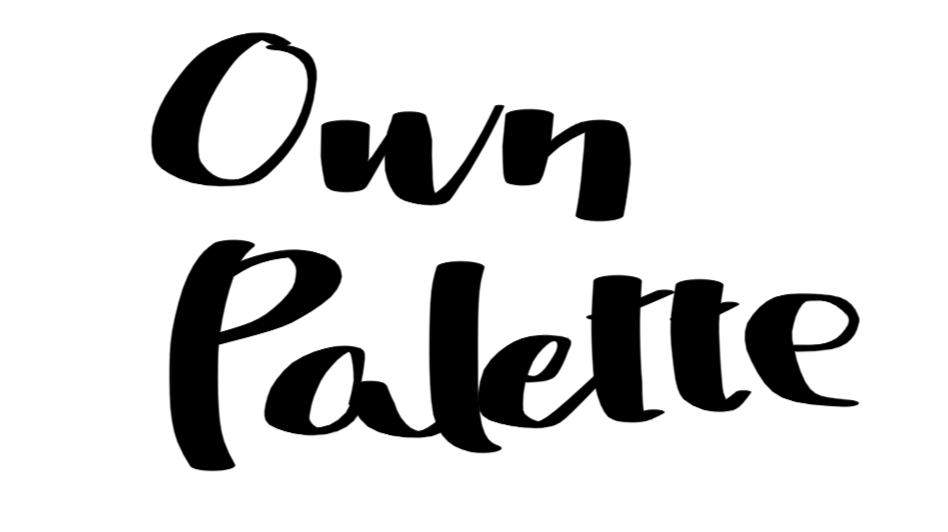 Own
Palette